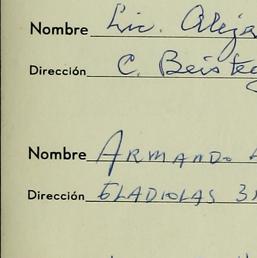 Nombre Lic. Aleja
Dirección C. Beisteg
Nombre ARMANDO
Dirección GLADIOLAS 3